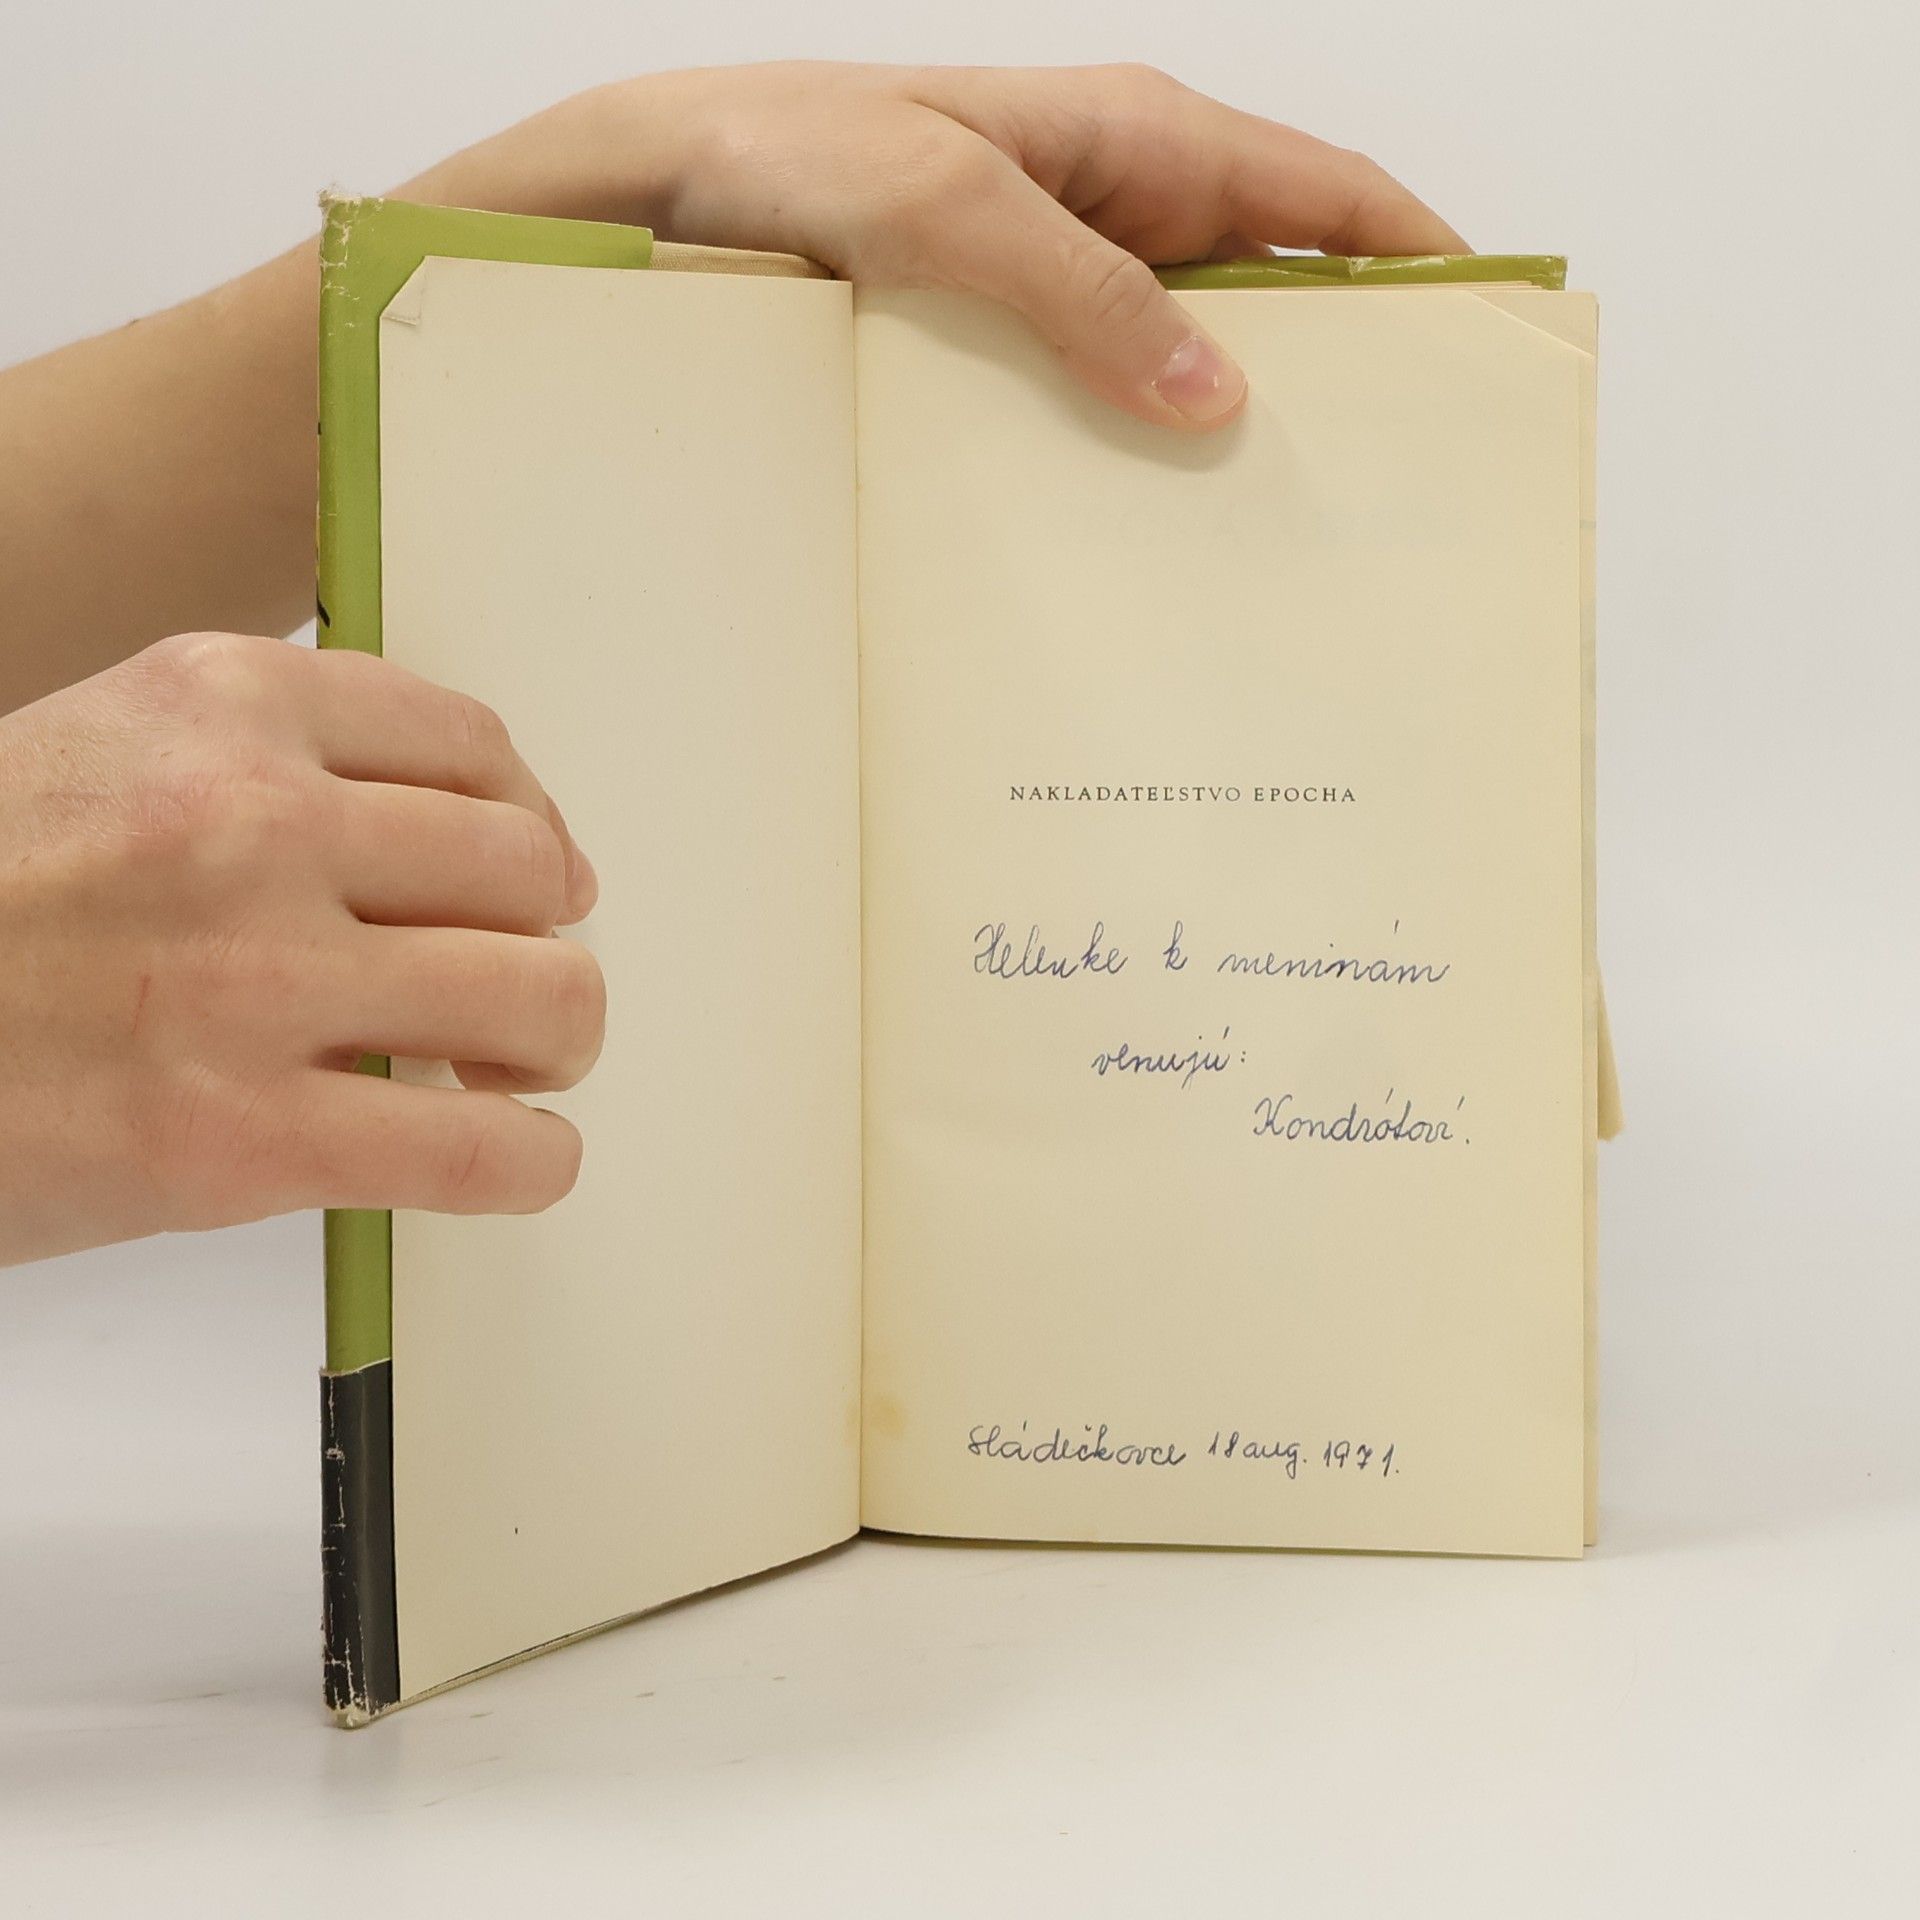 NAKLADATEĽSTVO EPOCHA
Helenke k meninám
venujú:
Kondrótovi.
Sládečkovce 18 aug. 1971.